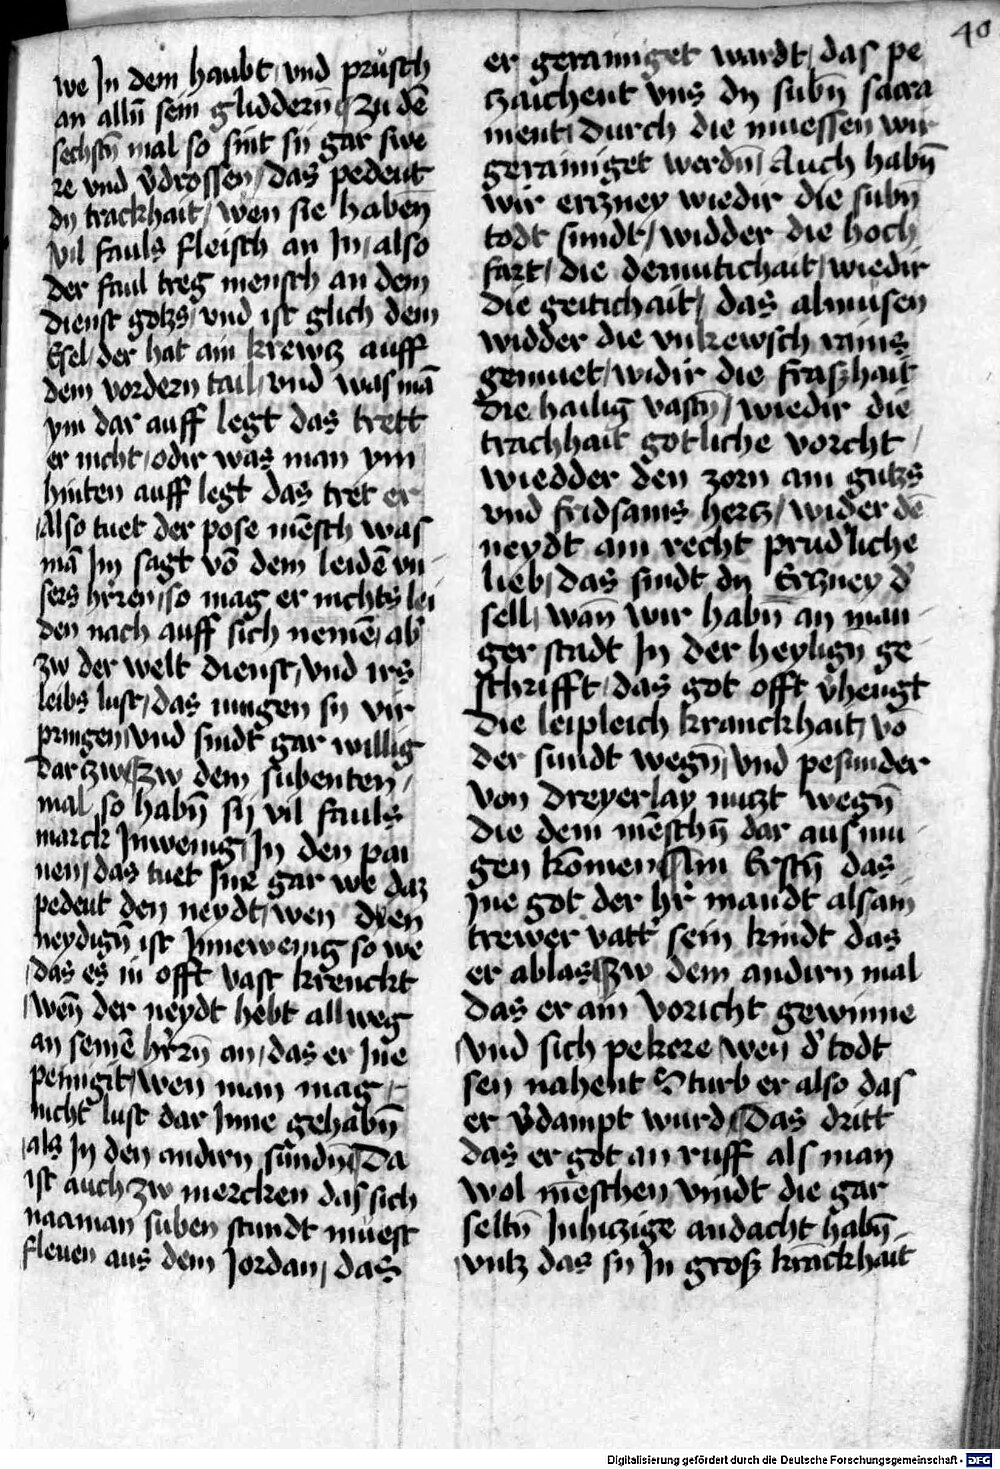 40
we In dem haubt / vnd prüsch
an allñ sein glidderñ Zu dē
sechstñ mal so sint sij gar swe
re vnd v̄drossen / das pedeut
dij trackhait / wen sie habeñ
vil fauls fleisch an In / also
der faul treg mensch an dem
dienst gotzs / vnd ist glich dem
Esel / der hat ain krewtz auff
dem vordern tail / vnd was mā
ym dar auff legt das trett
er nicht / odir was man ym
hinten auff legt das tret er
Also tuet der pose mēsch was
mā Im sagt vō dem leidē vn
sers hr̄ren / so mag er nichts lei
den nach auff sich nemē / ab
zw der welt dienst / vnd irs
leibs lust / das mugen sij vir
pringen / vnd sindt gar willig
dar zw Zw dem subenten /
mal so habñ sij vil fauls
marck Inwenig / In den pai
nen / das tuet sine gar we daz
pedeut den neydt / wen den
neydigñ ist Innewenig so we
das es in offt vast krenckt
/ weñ der neydt hebt allweg
an seinē hr̄rñ an / das er Ine
peinigit / wen man mag
nicht lust dar Inne gehabñ
als In den andirn sündñ Da
ist auch zw mercken das sich
naaman suben stundt müest
fleuen aus dem Jordan / das
er gerainiget wardt / das pe
tzaichent vns dij subñ sacra
ment / durch die muessen wir
gerainiget werdñ / Auch habñ
wir ertzney wiedir die subñ
todt sundt / widder die hoch
fart / die demutichait / wiedir
die geitichait / das almüsen
widder die vnkewsch rains
gemuet / widir die fraszhait
die hailig vastñ / wiedir die
trachhait gotliche vorcht /
wiedder den zorn ain gutzs
vnd fridsams hertz / wider dē
neydt ain recht prud'liche
lieb / das sindt dij Ertzney d'
sell / wañ wir habñ an man
ger stadt In der heyligñ ge
schrifft / das got offt v̄hengt
die leipleich kranckhait / vō
der sundt wegñ / vnd pesunder
von dreyerlay nutzt wegñ
die dem mēschñ dar aus mu
gen kōmen Am Erstñ das
Ine got der hr̄ mandt alsam
trewer vatt' sein kindt das
er ablas Zw dem andirn mal
das er ain voricht gewinne
/ vnd sich pekere / weñ d' todt
sen nahent Sturb er also das
er v̄dampt wurd Das dritt
das er got an ruff als man
wol mēschen vindt die gar
seltñ Inhiczige andacht habñ
/ vntz das sij In grosz krāckhait
Digitalisierung gefördert durch die Deutsche Forschungsgemeinschaft - DFG